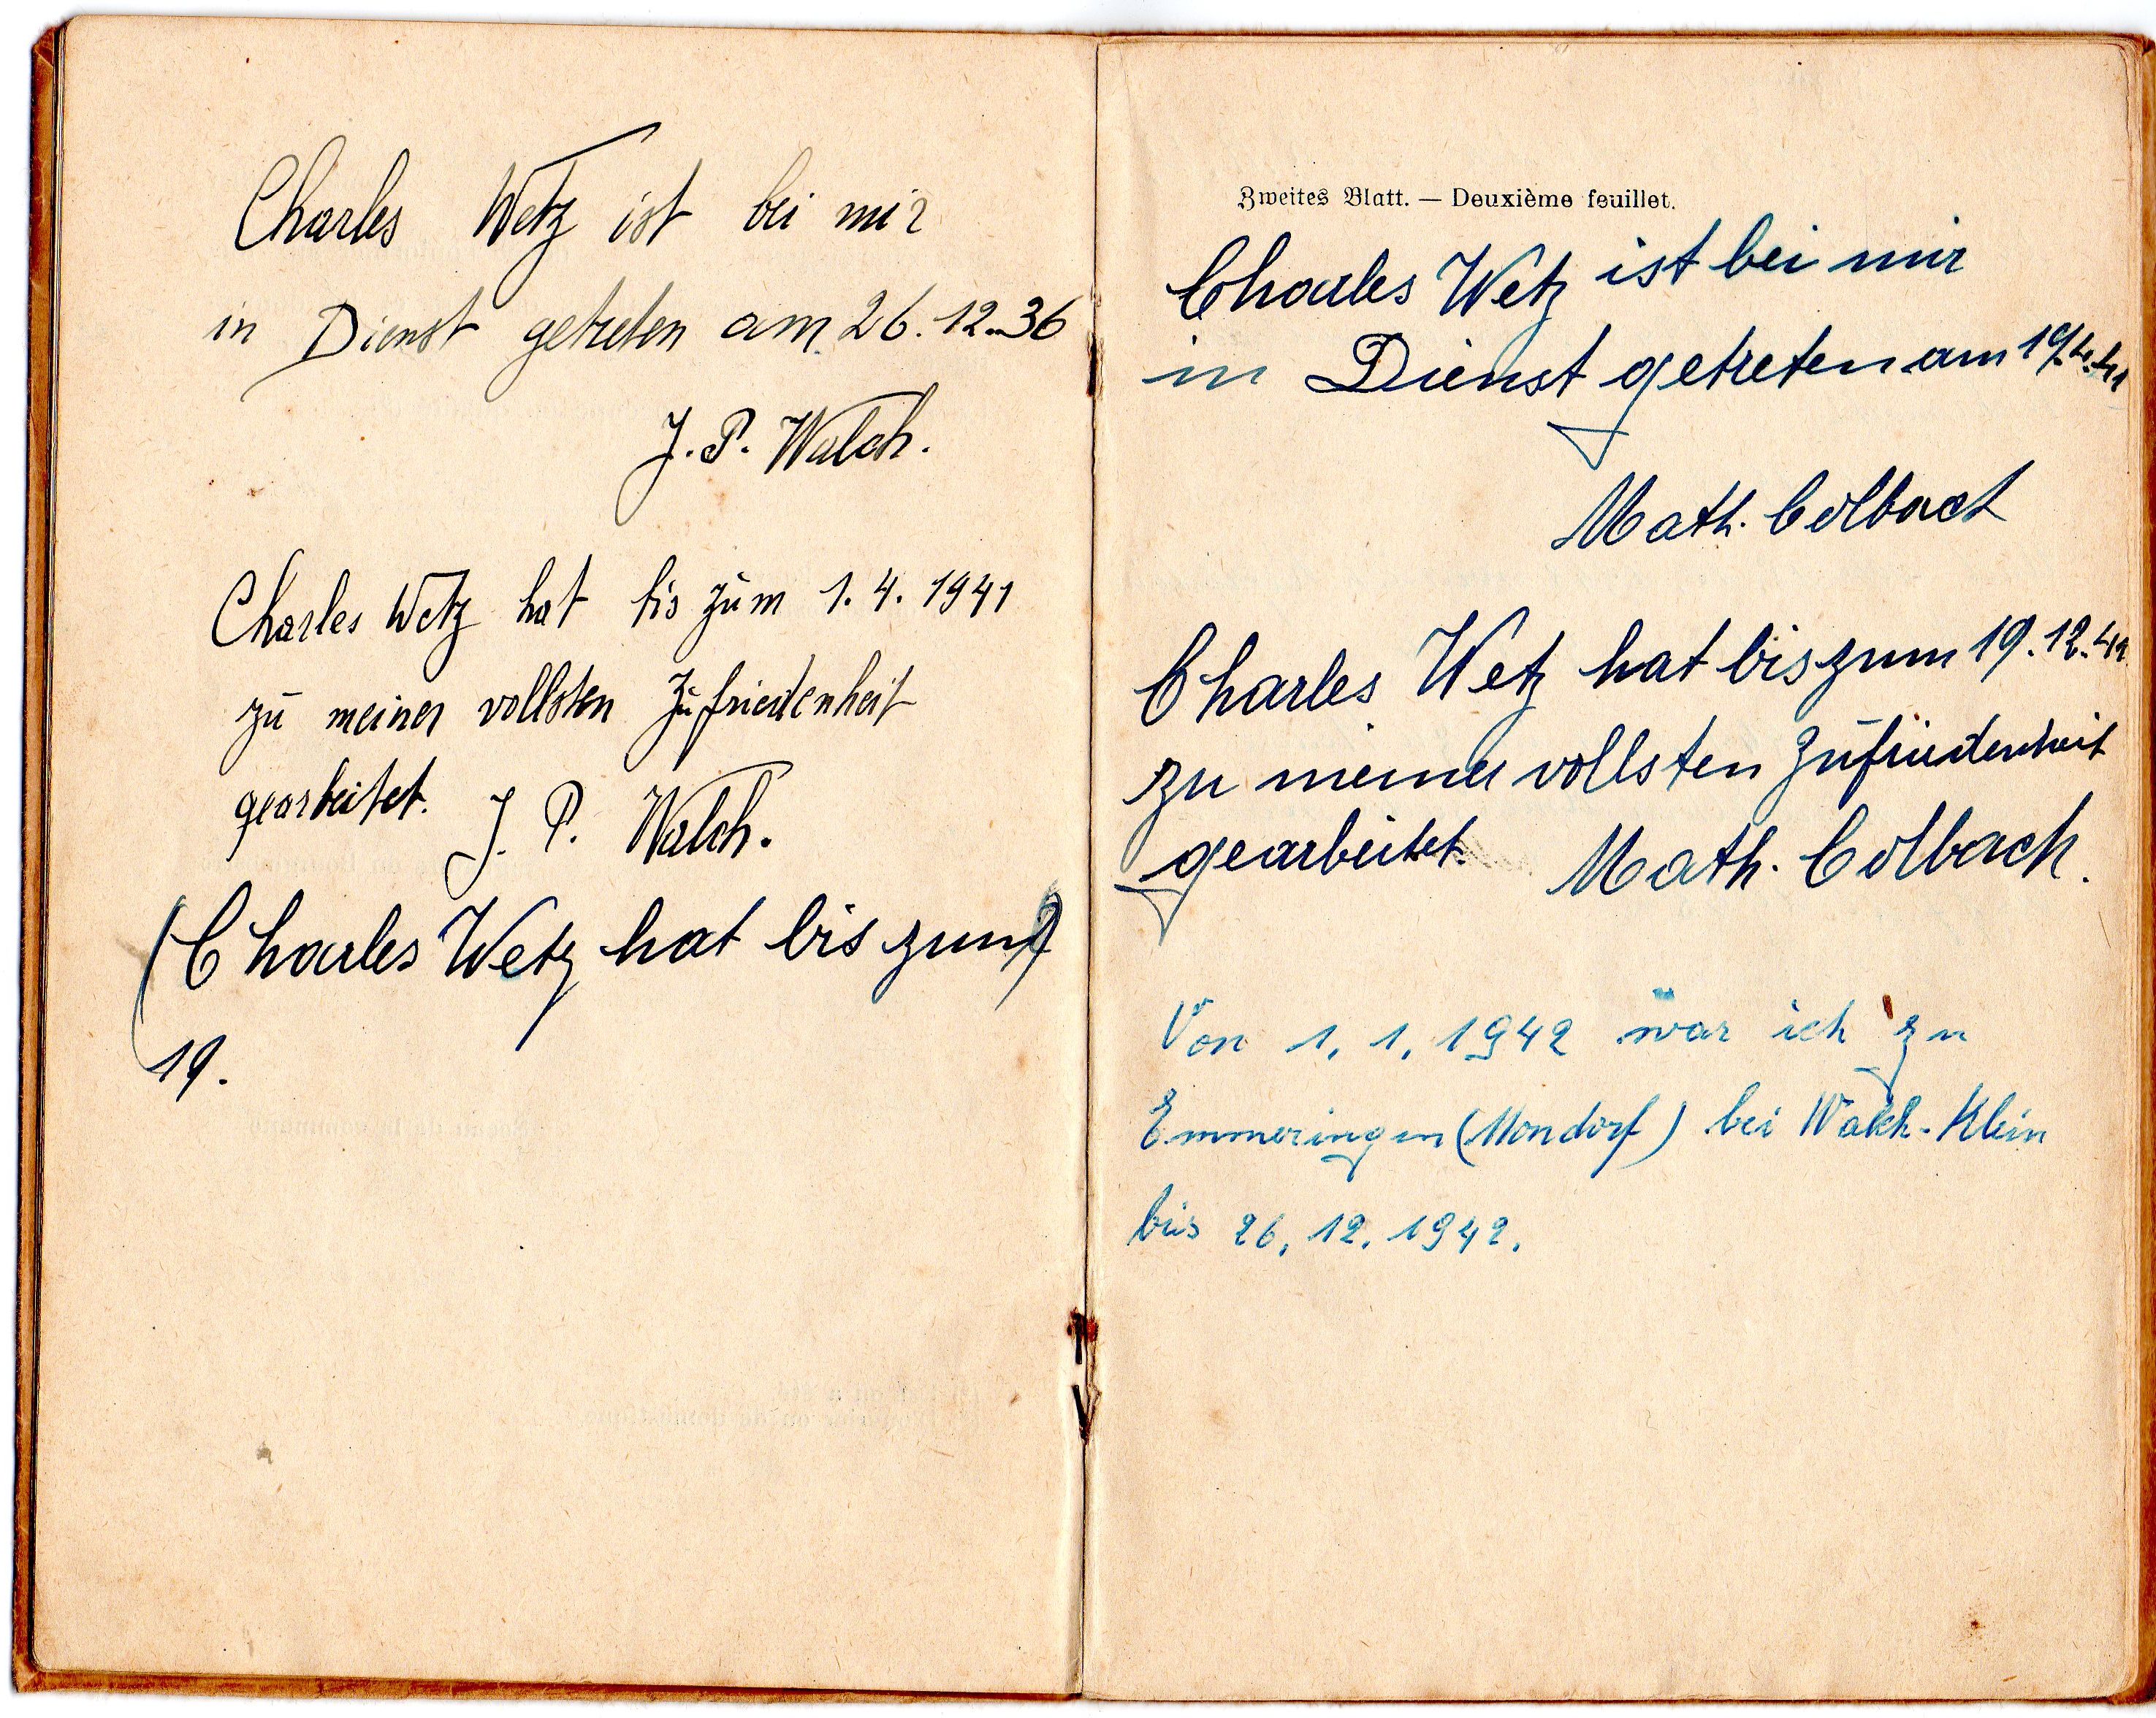 Charles Wetz ist bei mir
in Dienst getreten am 26.12.36
J. P. Walch.
Charles Wetz hat bis zum 1. 4. 1941
zu meiner vollsten Zufriedenheit
gearbeitet. J. P. Walch.
(Charles Wetz hat bis zum)
19.
Zweites Blatt. — Deuxième feuillet.
Charles Wetz ist bei mir
in Dienst getreten am 19.4.41
Math. Colbach
Charles Wetz hat bis zum 19.12.41
zu meiner vollsten Zufriedenheit
gearbeitet. Math. Colbach.
Von 1. 1. 1942 war ich zu
Emmeringen (Mondorf) bei Walch-Klein
bis 26. 12. 1942.